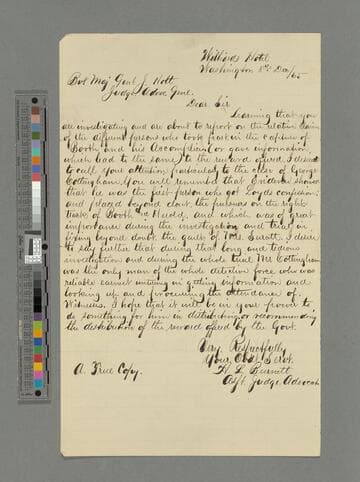 Willards Hotel
Washington 8th Dec/65
Bvt Maj Genl J. Holt
Judge Advo. Genl.
Dear Sir
Learning that you
are investigating and are about to report on the relative claims
of the different persons who took part in the capture of
Booth and his Accomplices (or gave information
which led to the same) to the reward offered, I desire
to call your attention particularly to the case of George
Cottingham. You will remember that Evidence showed
that he was the first person who got Loyds confession
and placed beyond doubt, the pursuers on the right
track of Booth and Herold, and which was of great
importance during the investigation and trial in
fixing beyond doubt the guilt of Mrs Suratt. I desire
to say further that during that long and tedious
investigation and during the whole trial Mr Cottingham
was the only man of the whole detective force who was
reliable earnest untiring in getting information and
looking up and procuring the attendance of
Witnesses. I hope that it will be in your power to
do something for him in distributing or recommending
the distribution of the reward offered by the Govt.
Very Respectfully
Your Obt Servt.
H L Burnett
A True Copy.
Asst Judge Advocate